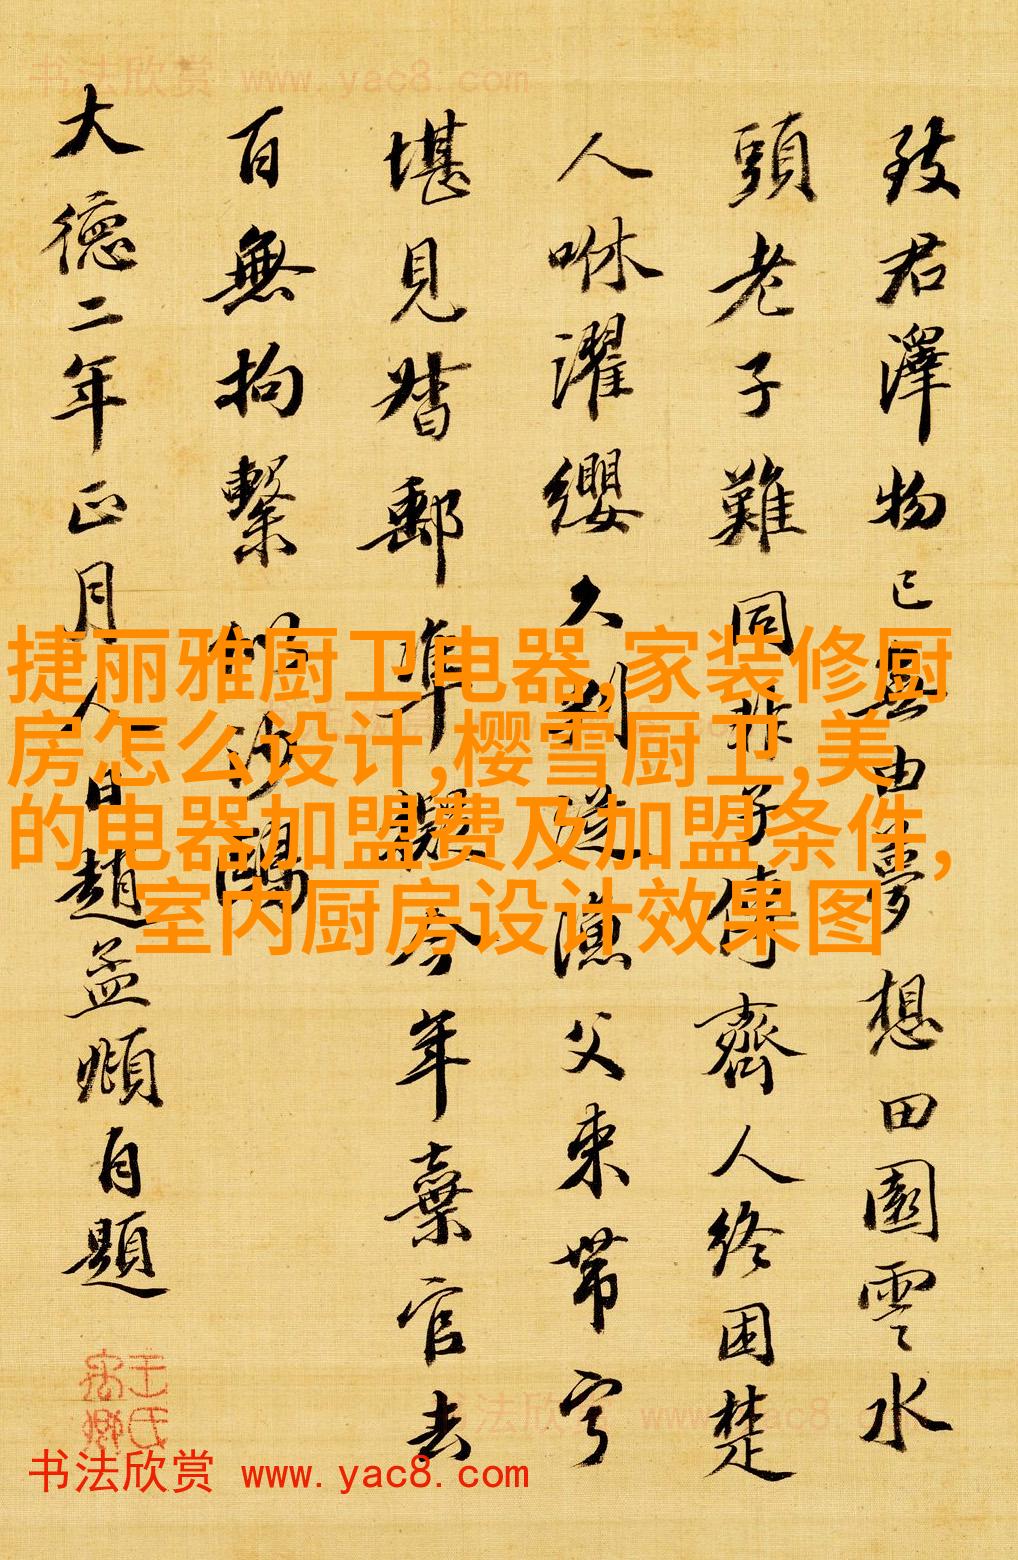 书法欣赏 www.yac8.com
致君澤物已無由夢想田園雲水
頭老子難同非子傳齊人終困楚
人咻濯纓久判從漁父束帶寧
堪見督郵準擬今年棄官去
百無拘繫似沙鷗
大德二年正月人日趙孟頫自題
捷丽雅厨卫电器,家装修厨
房怎么设计,樱雪厨卫,美
的电器加盟费及加盟条件,
室内厨房设计效果图
书法欣赏 www.yac8.com
书法欣赏 www.yac8.com